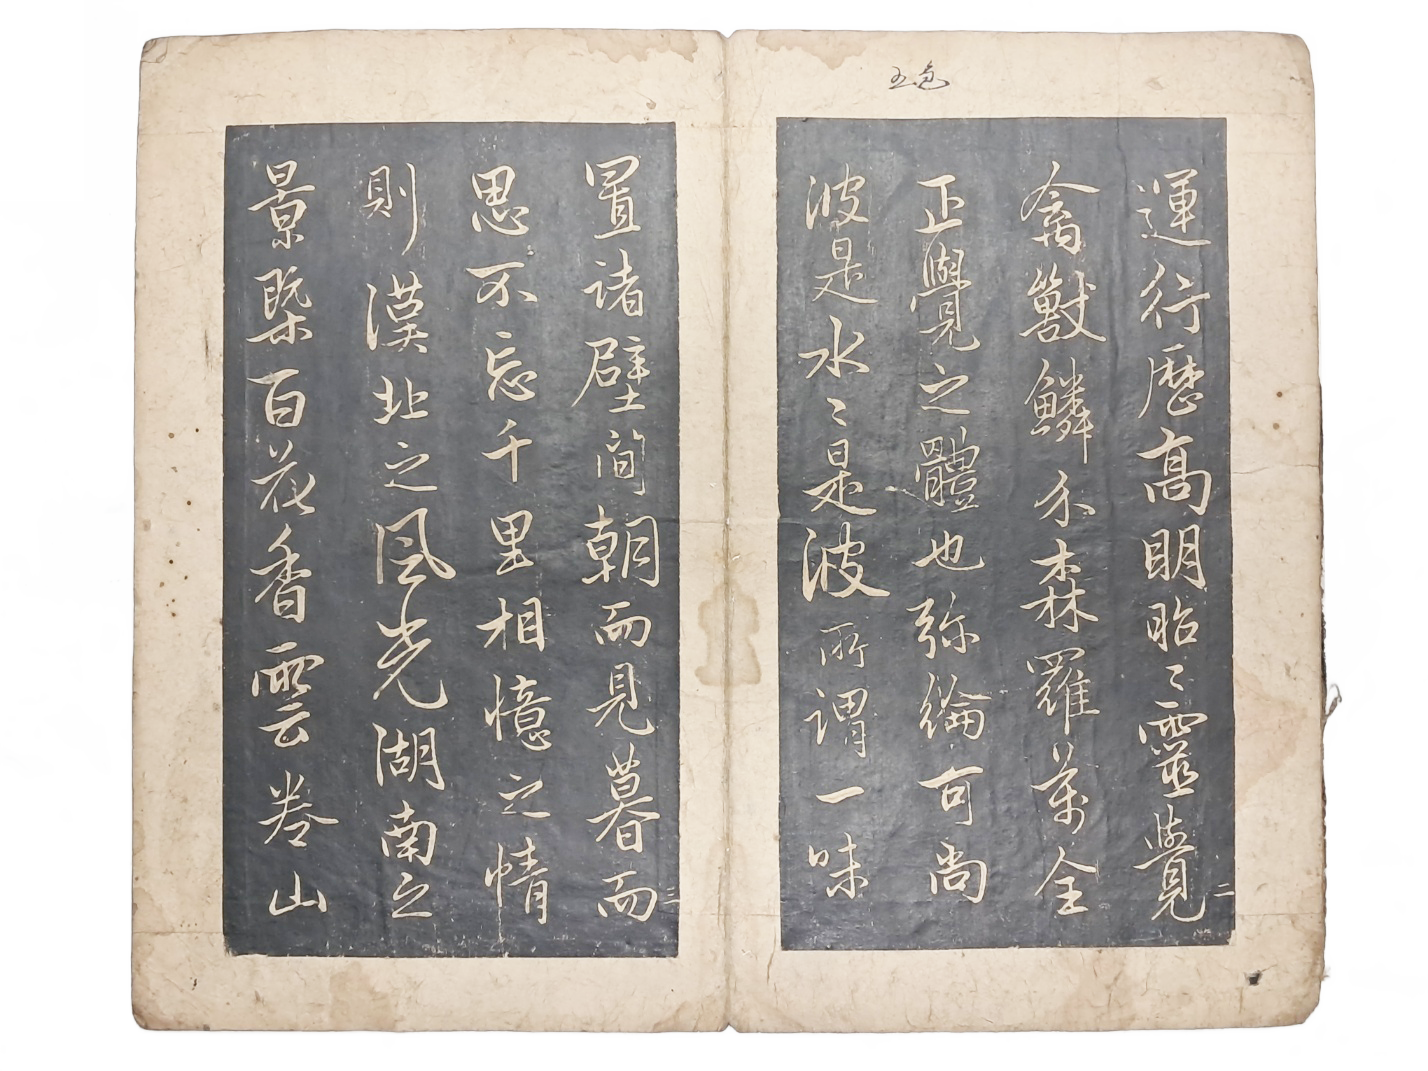 五色
運行歷高明昭〻靈覺
二
禽獸鱗介森羅萬全
正覺之體也弥綸可尚
波是水〻是波所謂一味
置諸壁間朝而見暮而
三
思不忘千里相憶之情
則漠北之風光湖南之
景槩百花香雲巻山